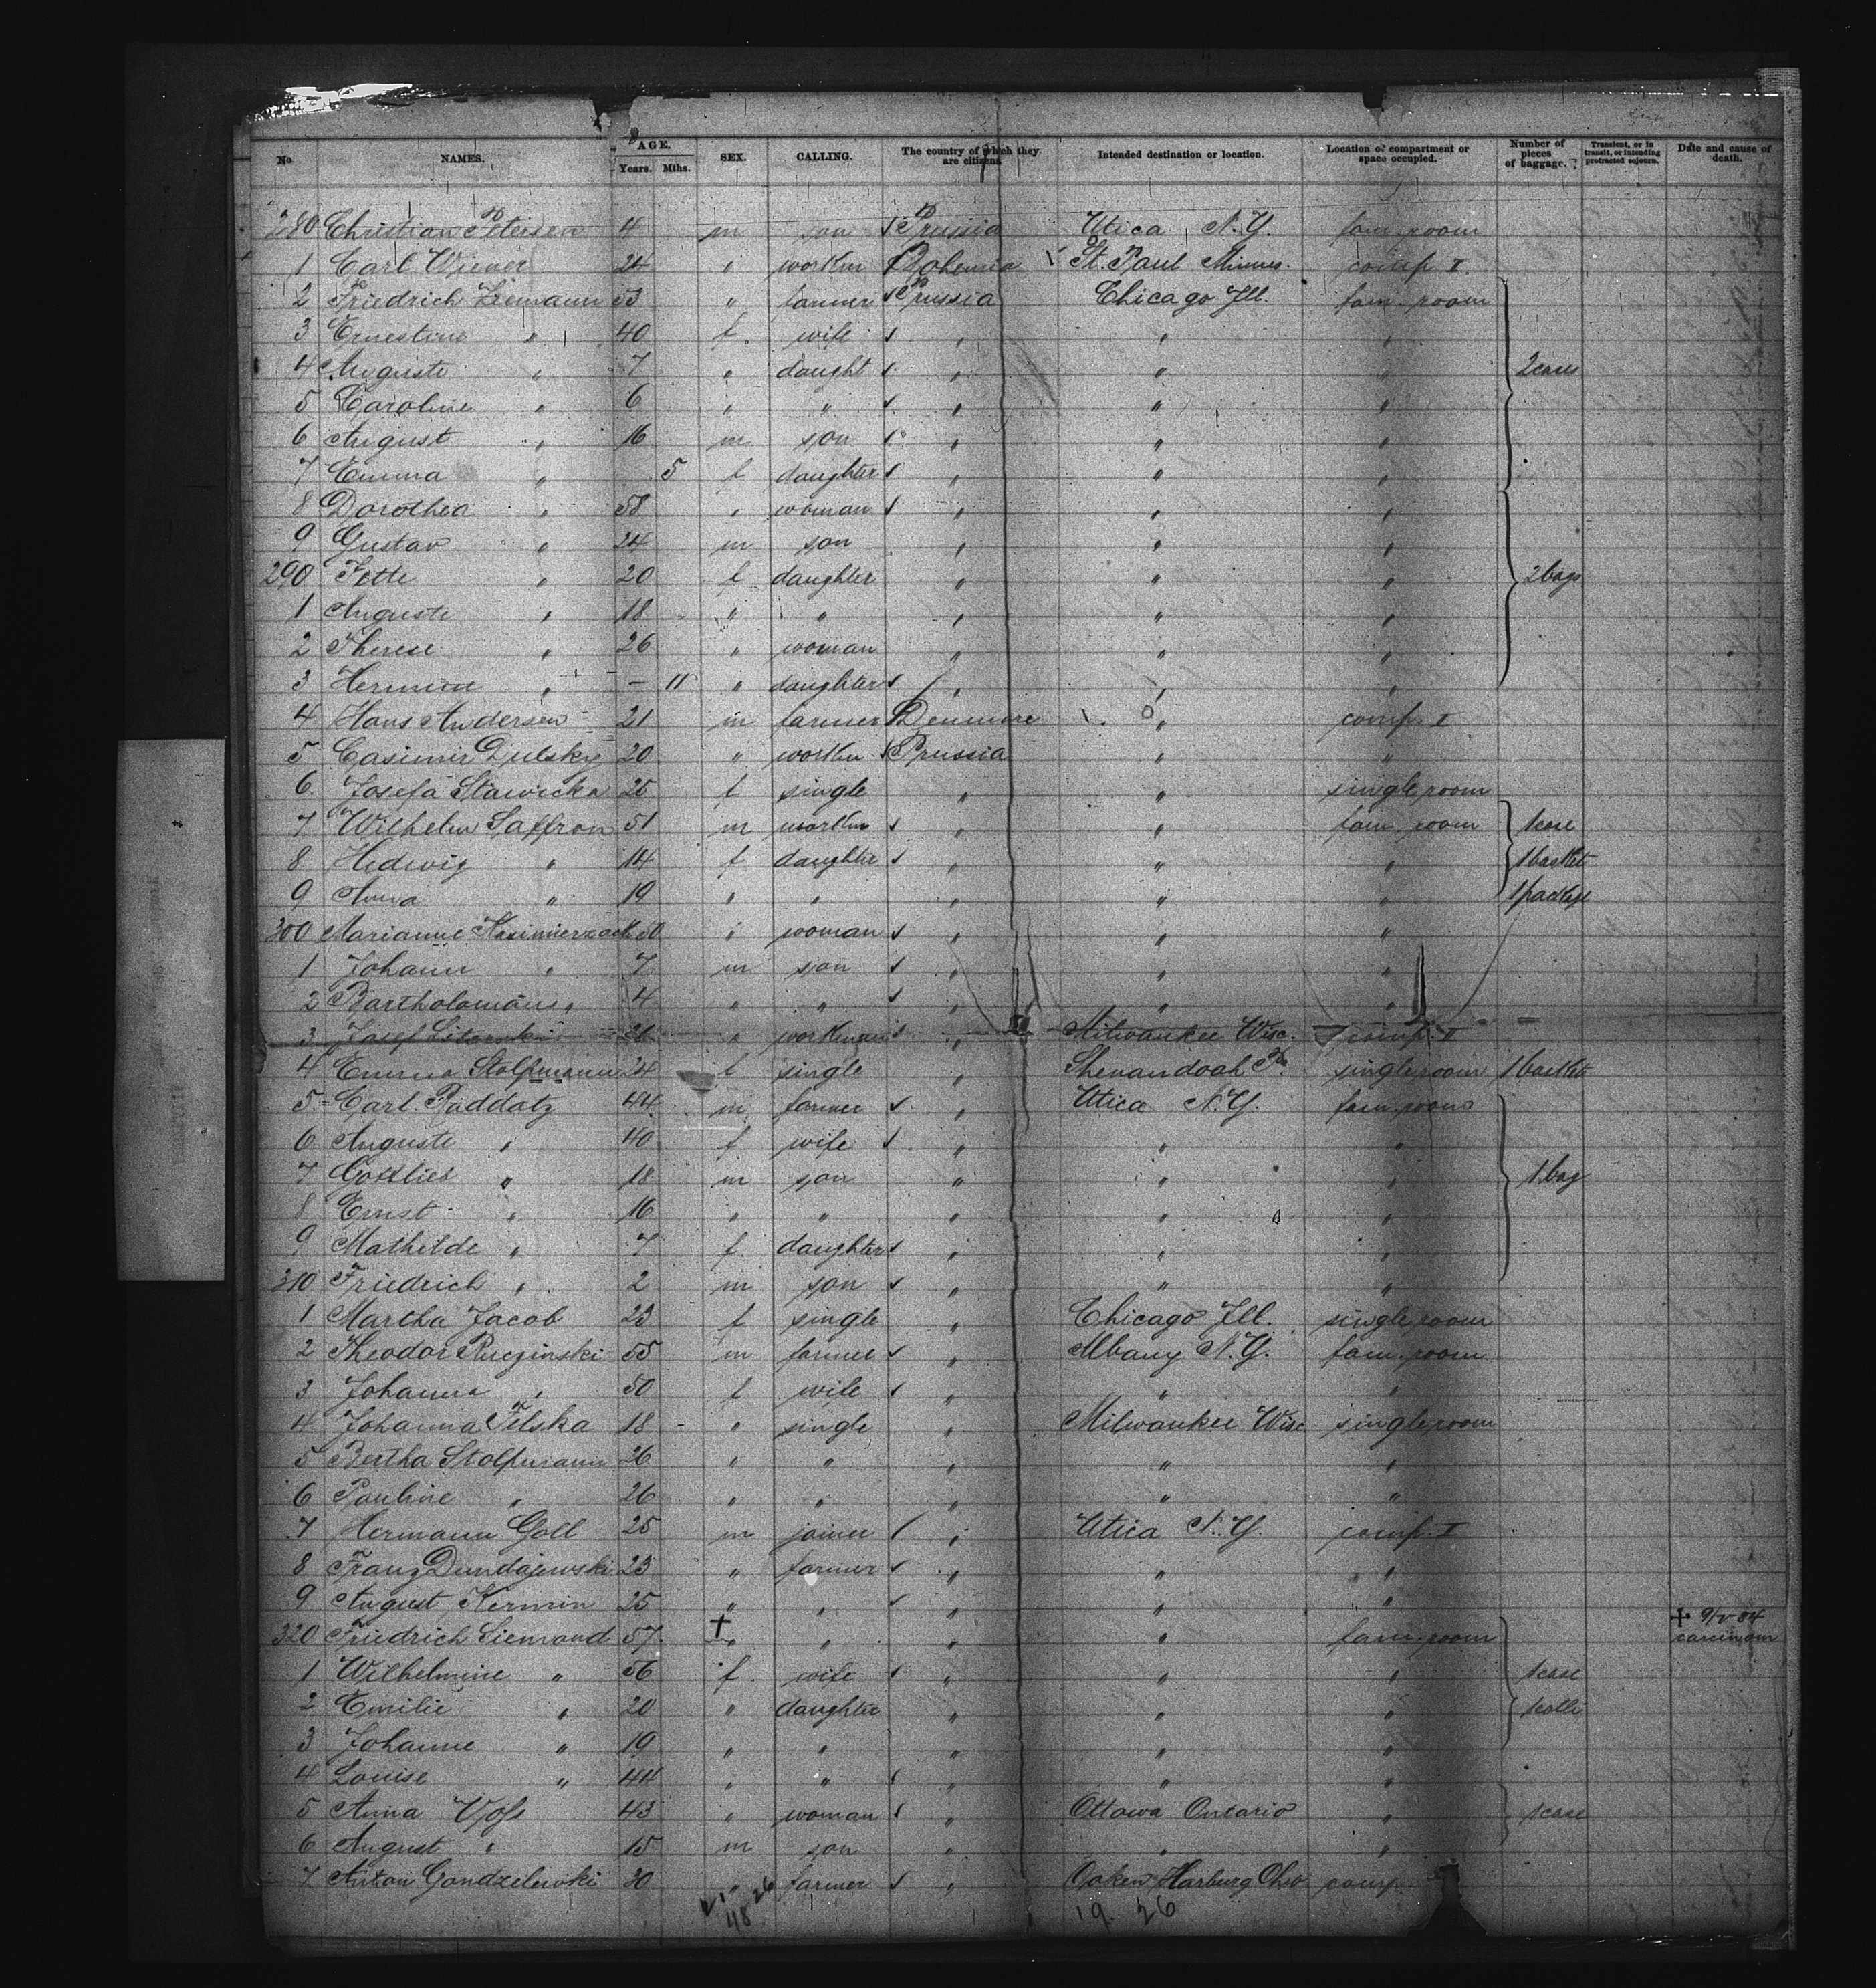 No. NAMES. AGE. Years. Mths. SEX. CALLING. The country of which they are citizens Intended destination or location. Location of compartment or space occupied. Number of pieces of baggage. Transient, or in transit, or intending protracted sojourn. Date and cause of death.
280 Christian Petersen 4 m son Prussia Utica N.Y. fam. room
1 Carl Wiener 24 " workm Bohemia St. Paul Minnes. comp. I
2 Friedrich Ziemann 53 " farmer Prussia Chicago Ill. fam. room
3 Ernestine " 40 f. wife " " "
4 Auguste " 7 " daught " " " 2 cases
5 Caroline " 6 " " " " "
6 August " 16 m son " " "
7 Emma " 5 f daughter " " "
8 Dorothea " 58 " woman " " "
9 Gustav " 24 m son " " "
290 Jette " 20 f daughter " " " 2 bags
1 Auguste " 18 " " " " "
2 Therese " 26 " woman " " "
3 " – 11 " daughter " " "
4 Hans Andersen 21 m farmer " comp. I
5 Casimir Dulsky 20 " workm Prussia " "
6 Josefa Stawicka 25 f single " " single room
7 Wilhelm Saffron 51 m workm " " fam. room 1 case
8 Hedwig " 14 f daughter " " " 1 basket
9 Anna " 19 " " " " "
300 Marianne 30 " woman " " "
1 Johann " 7 m son " " "
2 Bartholomäus " 4 " " " " "
3 Josef 26 " workman " Milwaukee Wisc. comp. II
4 Emma Stolpmann 24 f single " Shenandoah Pa. single room 1 basket
5 Carl Raddatz 44 m farmer " Utica N.Y. fam. room
6 Auguste " 40 f wife " " "
7 Gottlieb " 18 m son " " " 1 bag
8 Ernst " 16 " " " " "
9 Mathilde " 7 f. daughter " " "
310 Friedrich " 2 m son " " "
1 Martha Jacob 23 f single " Chicago Ill. single room
2 Theodor Ruczinski 55 m farmer " Albany N.Y. fam. room
3 Johanna " 50 f wife " " "
4 Johanna Pelska 18 " single " Milwaukee Wisc. single room
5 Bertha Stolpmann 26 " " " " "
6 Pauline " 26 " " " " "
7 Hermann Goll 25 m joiner " Utica N.Y. comp. I
8 Franz Dundajewski 23 " farmer " " "
9 August Kermin 25 " " " " "
320 Friedrich Siemand 57 † " " " " fam. room † 9/5 84 carcinom
1 Wilhelmine " 56 f wife " " " 1 case
2 Emilie " 20 " daughter " " " 1 colli
3 Johanne " 19 " " " " "
4 Louise " " " " " "
5 Anna Voss 43 " woman " Ottowa Ontario " 1 case
6 August " 15 m son " " "
7 Anton Gondzelewski 30 " farmer " Oaken Harburg Ohio comp.
48 26 19 26